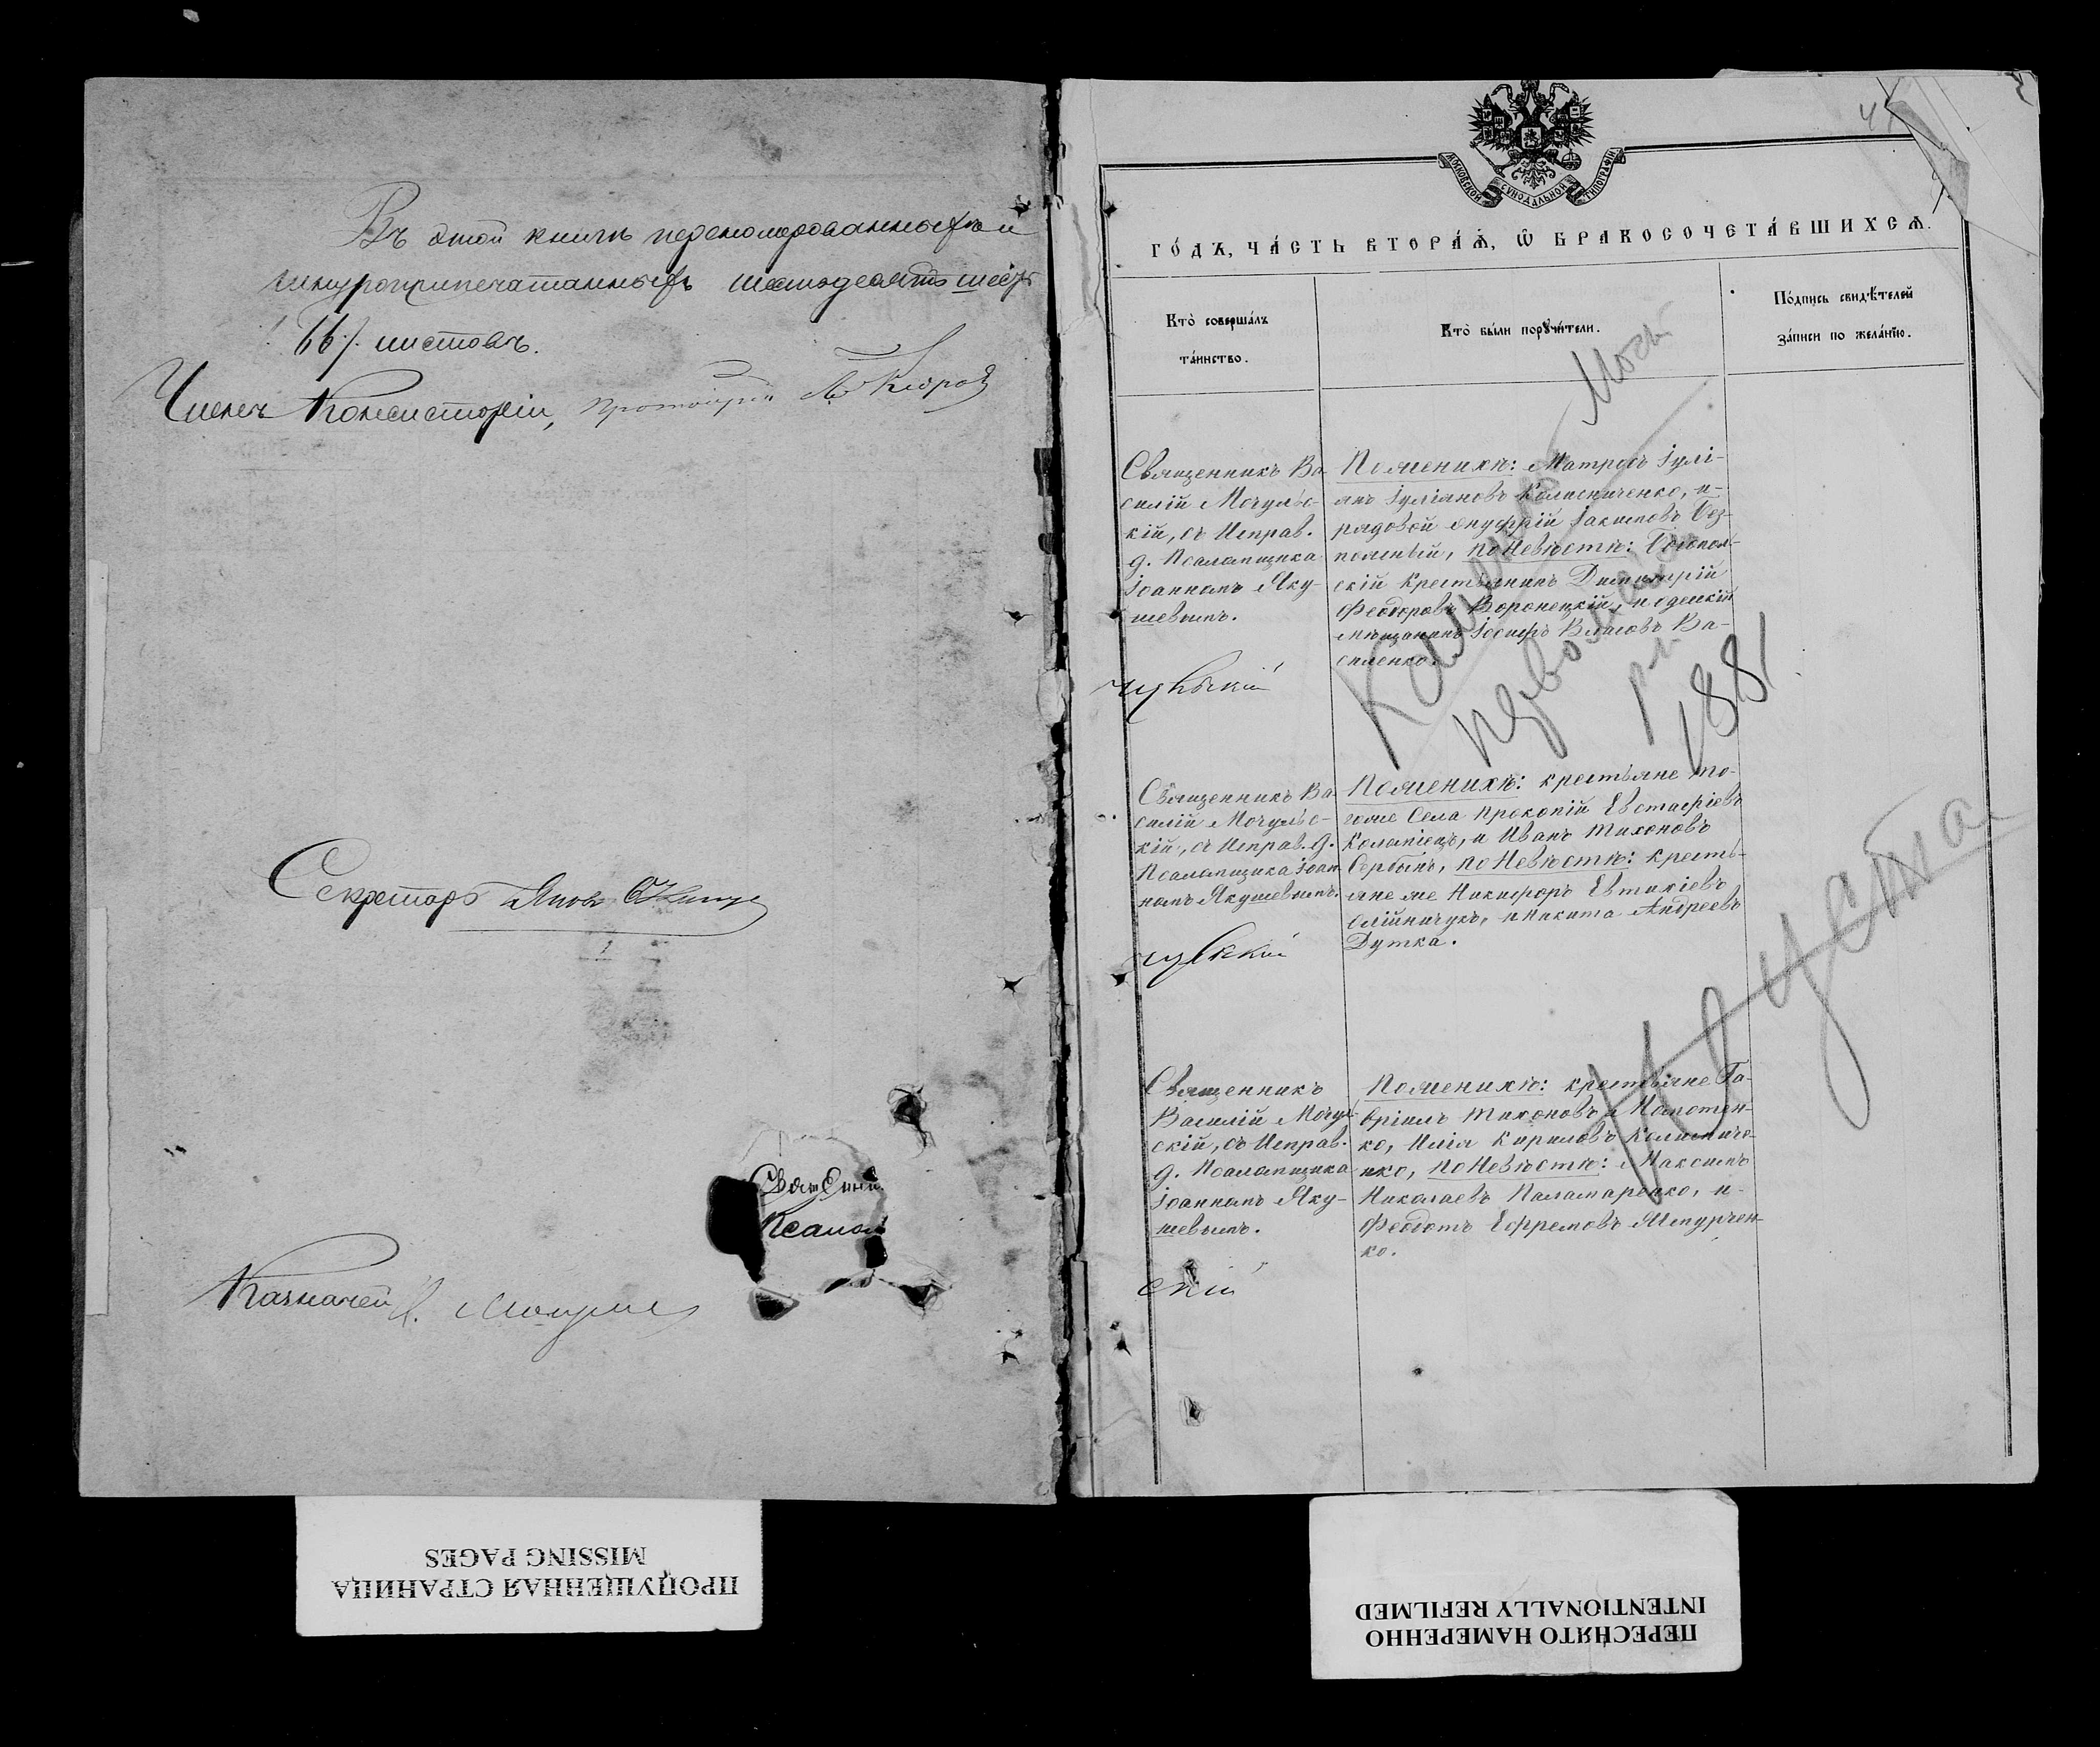 Въ этой книгѣ перенумерованныхъ и
шнуроприпечатанныхъ шестьдесятъ шесть
/66/. листовъ.
Членъ Консисторіи, протоіерей
Секретарь
Казначей
Псалом
МОСКОВСКОЙ СУНОДАЛЬНОЙ ТИПОГРАФІИ
ГО́ДЪ, ЧА́СТЬ ВТОРА́Ѧ, Ѿ БРАКОСОЧЕТА́ВШИХСѦ.
Кто̀ соверша́лъ
та́инство.
Кто̀ бы́ли порꙋчи́тели.
По́дпись свидѣ́телей
за́писи по жела́нїю.
Священникъ Ва-
силій Мочульс-
кій, съ Исправ.
д. Псаломщика
Іоанномъ Яку-
шевымъ.
По женихѣ: Матросъ Іулі-
анъ Іуліановъ Колисниченко, и
рядовой Онуфрій Іакимовъ Без-
палый, по Невѣстѣ: Богопол-
скій крестьянинъ Димитрій
Феодоровъ Воронецкій, и одескій
мѣщанинъ Іосифъ Власовъ Ва-
силенко.
1881
Священникъ Ва-
силій Мочульс-
кій, съ Исправ. д.
Псаломщика Іоан
номъ Якушевымъ.
По женихѣ: крестьяне то-
гоже Села Прокопій Евстафіевъ
Коломіецъ, и Иванъ Тихоновъ
Сербынъ, по Невѣстѣ: кресть-
яне же Никифоръ Евтихіевъ
Олійничукъ, и Никита Андреевъ
Дутка.
Священникъ
Василій Мочул
скій, съ Исправ.
д. Псаломщика
Іоанномъ Яку-
шевымъ.
скій
По женихѣ: крестьяне Га-
вріилъ Тихоновъ
ко, Илія Кириловъ Колисниче-
нко, по Невѣстѣ: Максимъ
Николаевъ Паламаренко, и
Феодотъ Ефремовъ
ко.
ПРОПУЩЕННАЯ СТРАНИЦА
MISSING PAGES
ПЕРЕСНЯТО НАМЕРЕННО
INTENTIONALLY REFILMED